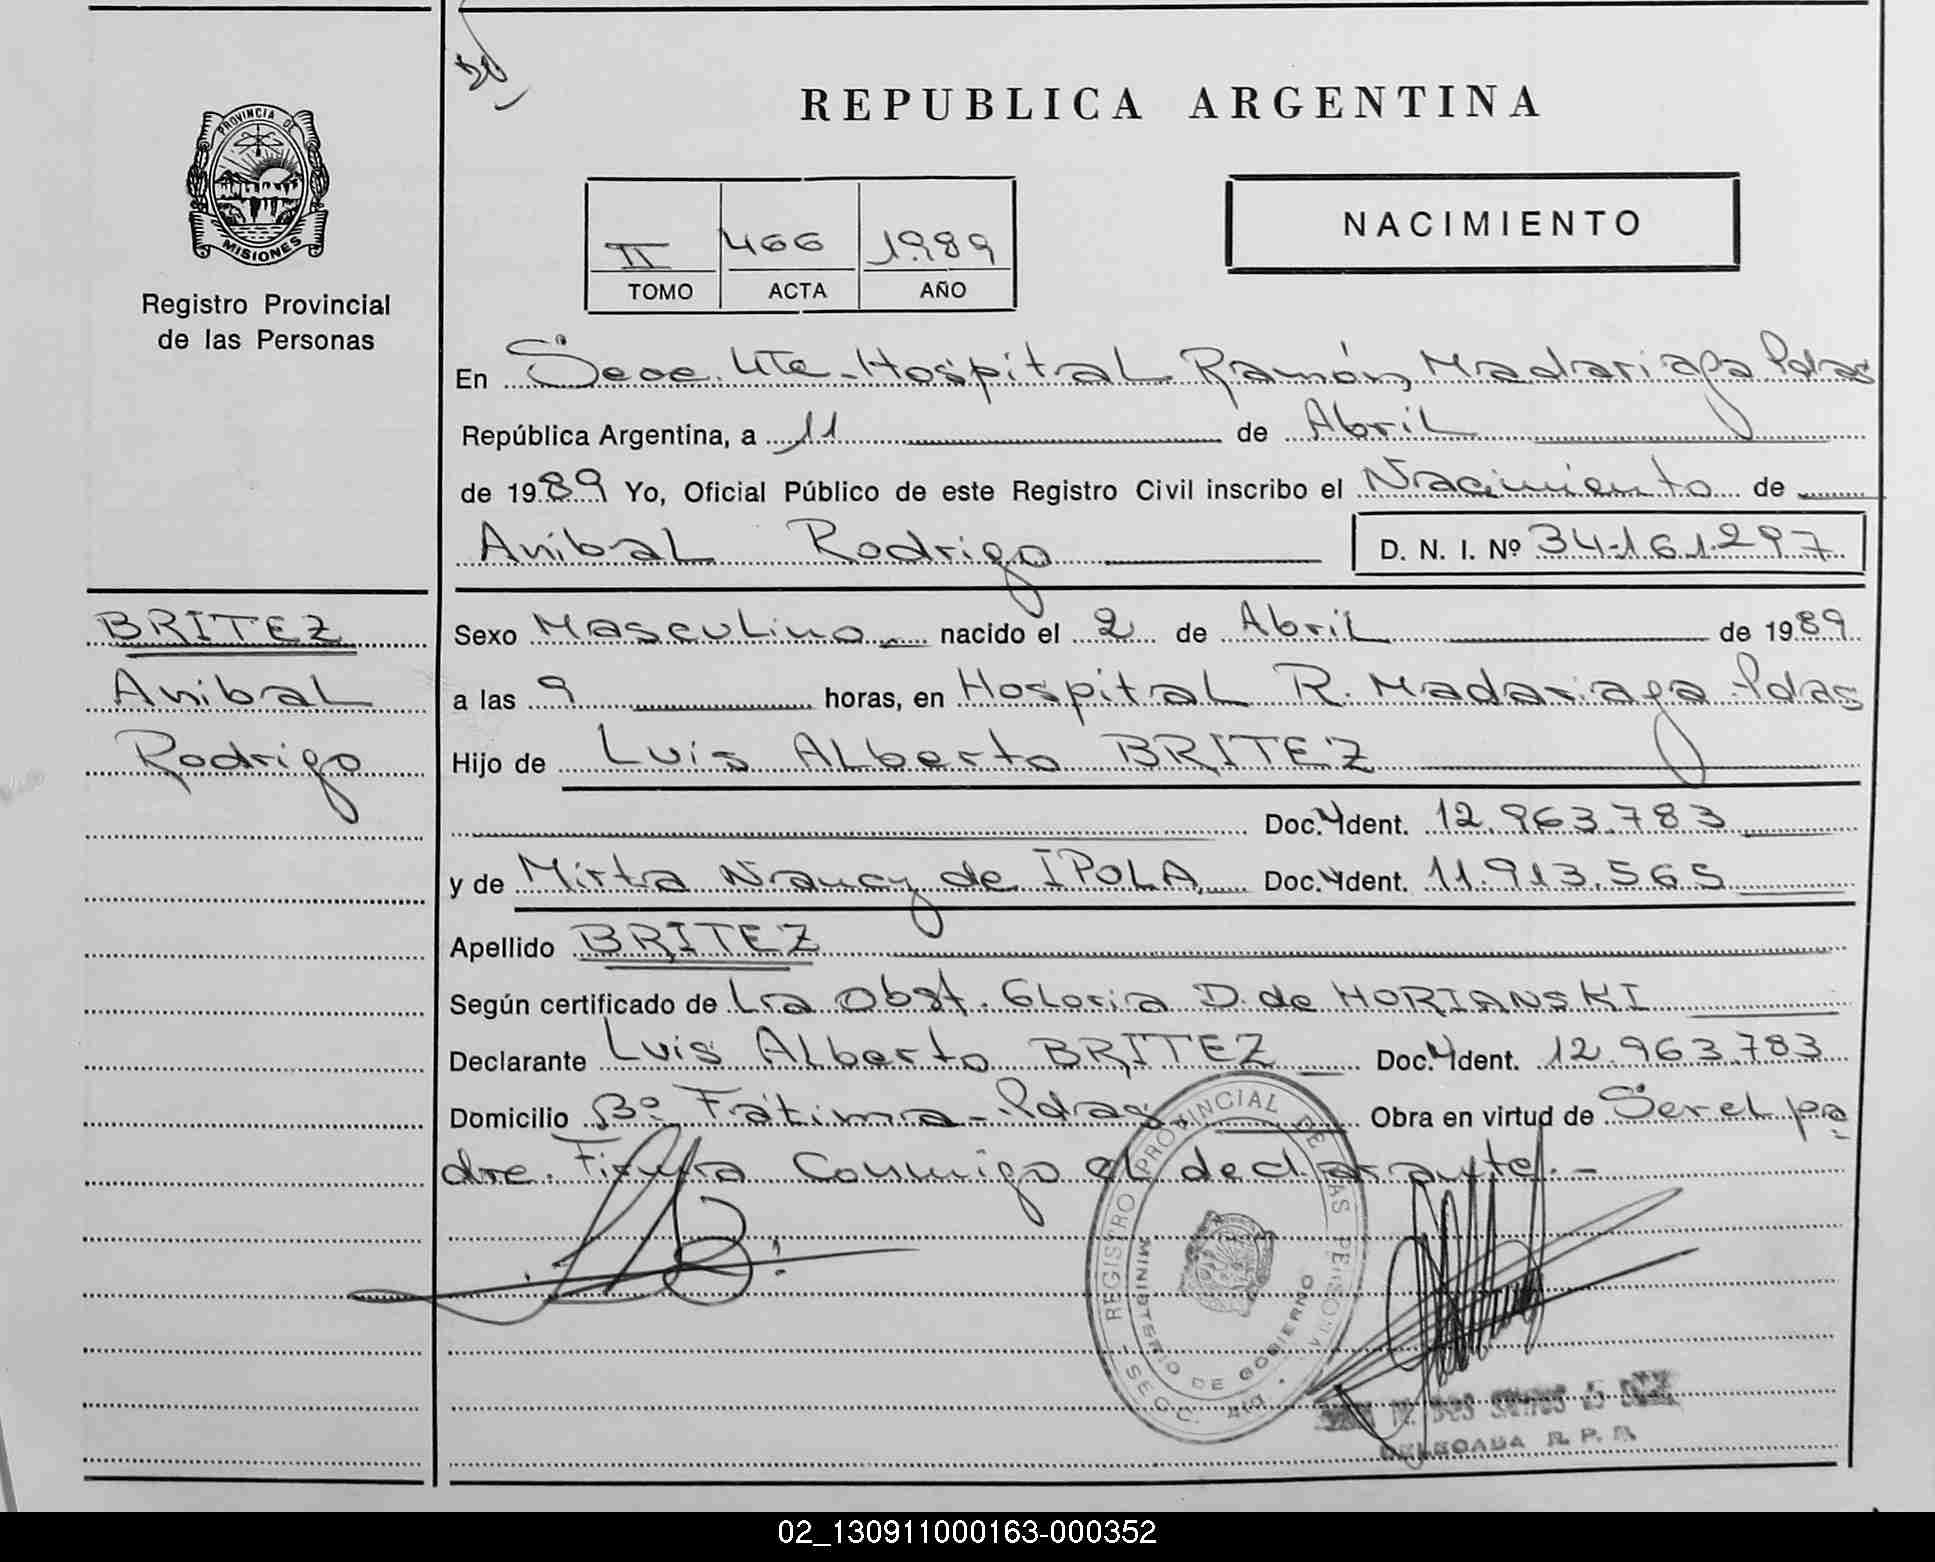 50
PROVINCIA DE
MISIONES
Registro Provincial
de las Personas
REPUBLICA ARGENTINA
II 466 1989
TOMO ACTA AÑO
NACIMIENTO
En Secc. 4Ta - Hospital Ramón Madariaga Pdas
República Argentina, a 11 de Abril
de 1989 Yo, Oficial Público de este Registro Civil inscribo el Nacimiento de
Anibal Rodrigo D. N. I. Nº 34.161.297
BRITEZ
Anibal
Rodrigo
Sexo Masculino nacido el 2 de Abril de 1989
a las 9 horas, en Hospital R. Madariaga Pdas
Hijo de Luis Alberto BRITEZ
Doc. Ident. 12.963.783
y de Mirta Nancy de IPOLA Doc. Ident. 11.913.565
Apellido BRITEZ
Según certificado de La Obst. Gloria D. de HORIANSKI
Declarante Luis Alberto BRITEZ Doc. Ident. 12.963.783
Domicilio Bº Fátima - Pdas Obra en virtud de Ser el pa
dre. Firma Conmigo el declarante.-
REGISTRO PROVINCIAL DE LAS PERSONAS
MINISTERIO DE GOBIERNO
SECC. 4ta
DOS SANTOS
DELEGADA R. P. P.
02_130911000163-000352